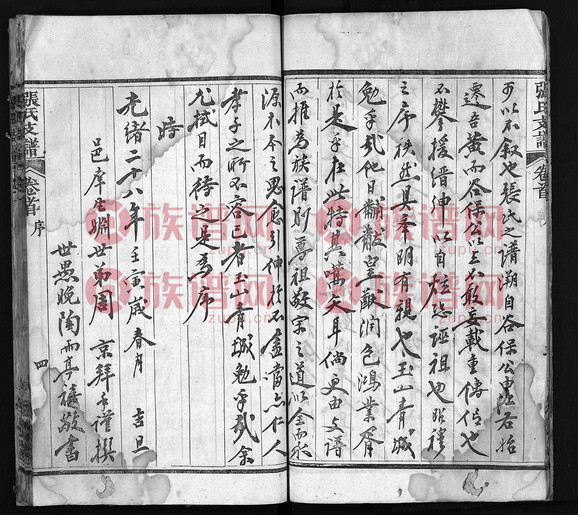 張氏支譜
卷首
可以不叙也張氏之譜溯自谷保公惠君始
遷吾黄而谷保公以上不敢妄載重傳信也
不攀援縉紳以自炫恐誣祖也昭穆
之序秩然具奉明有親也玉山青城
勉乎哉他日黼黻皇猷潤色鴻業胥
於是乎在此特其嚆矢耳倘更由支譜
而推為族譜則尊祖敬宗之道以全而水
源木本之思愈引伸於不盡當亦仁人
孝子之所不容已者玉山青城勉乎哉余
尤拭目而待之是為序
時
光緒二十八年壬寅歲春月 吉旦
邑庠生姻世再周 京拜手謹撰
世愚晚陶而亭禧敬書
張氏支譜
卷首
序
四
族谱网
zupu.cn